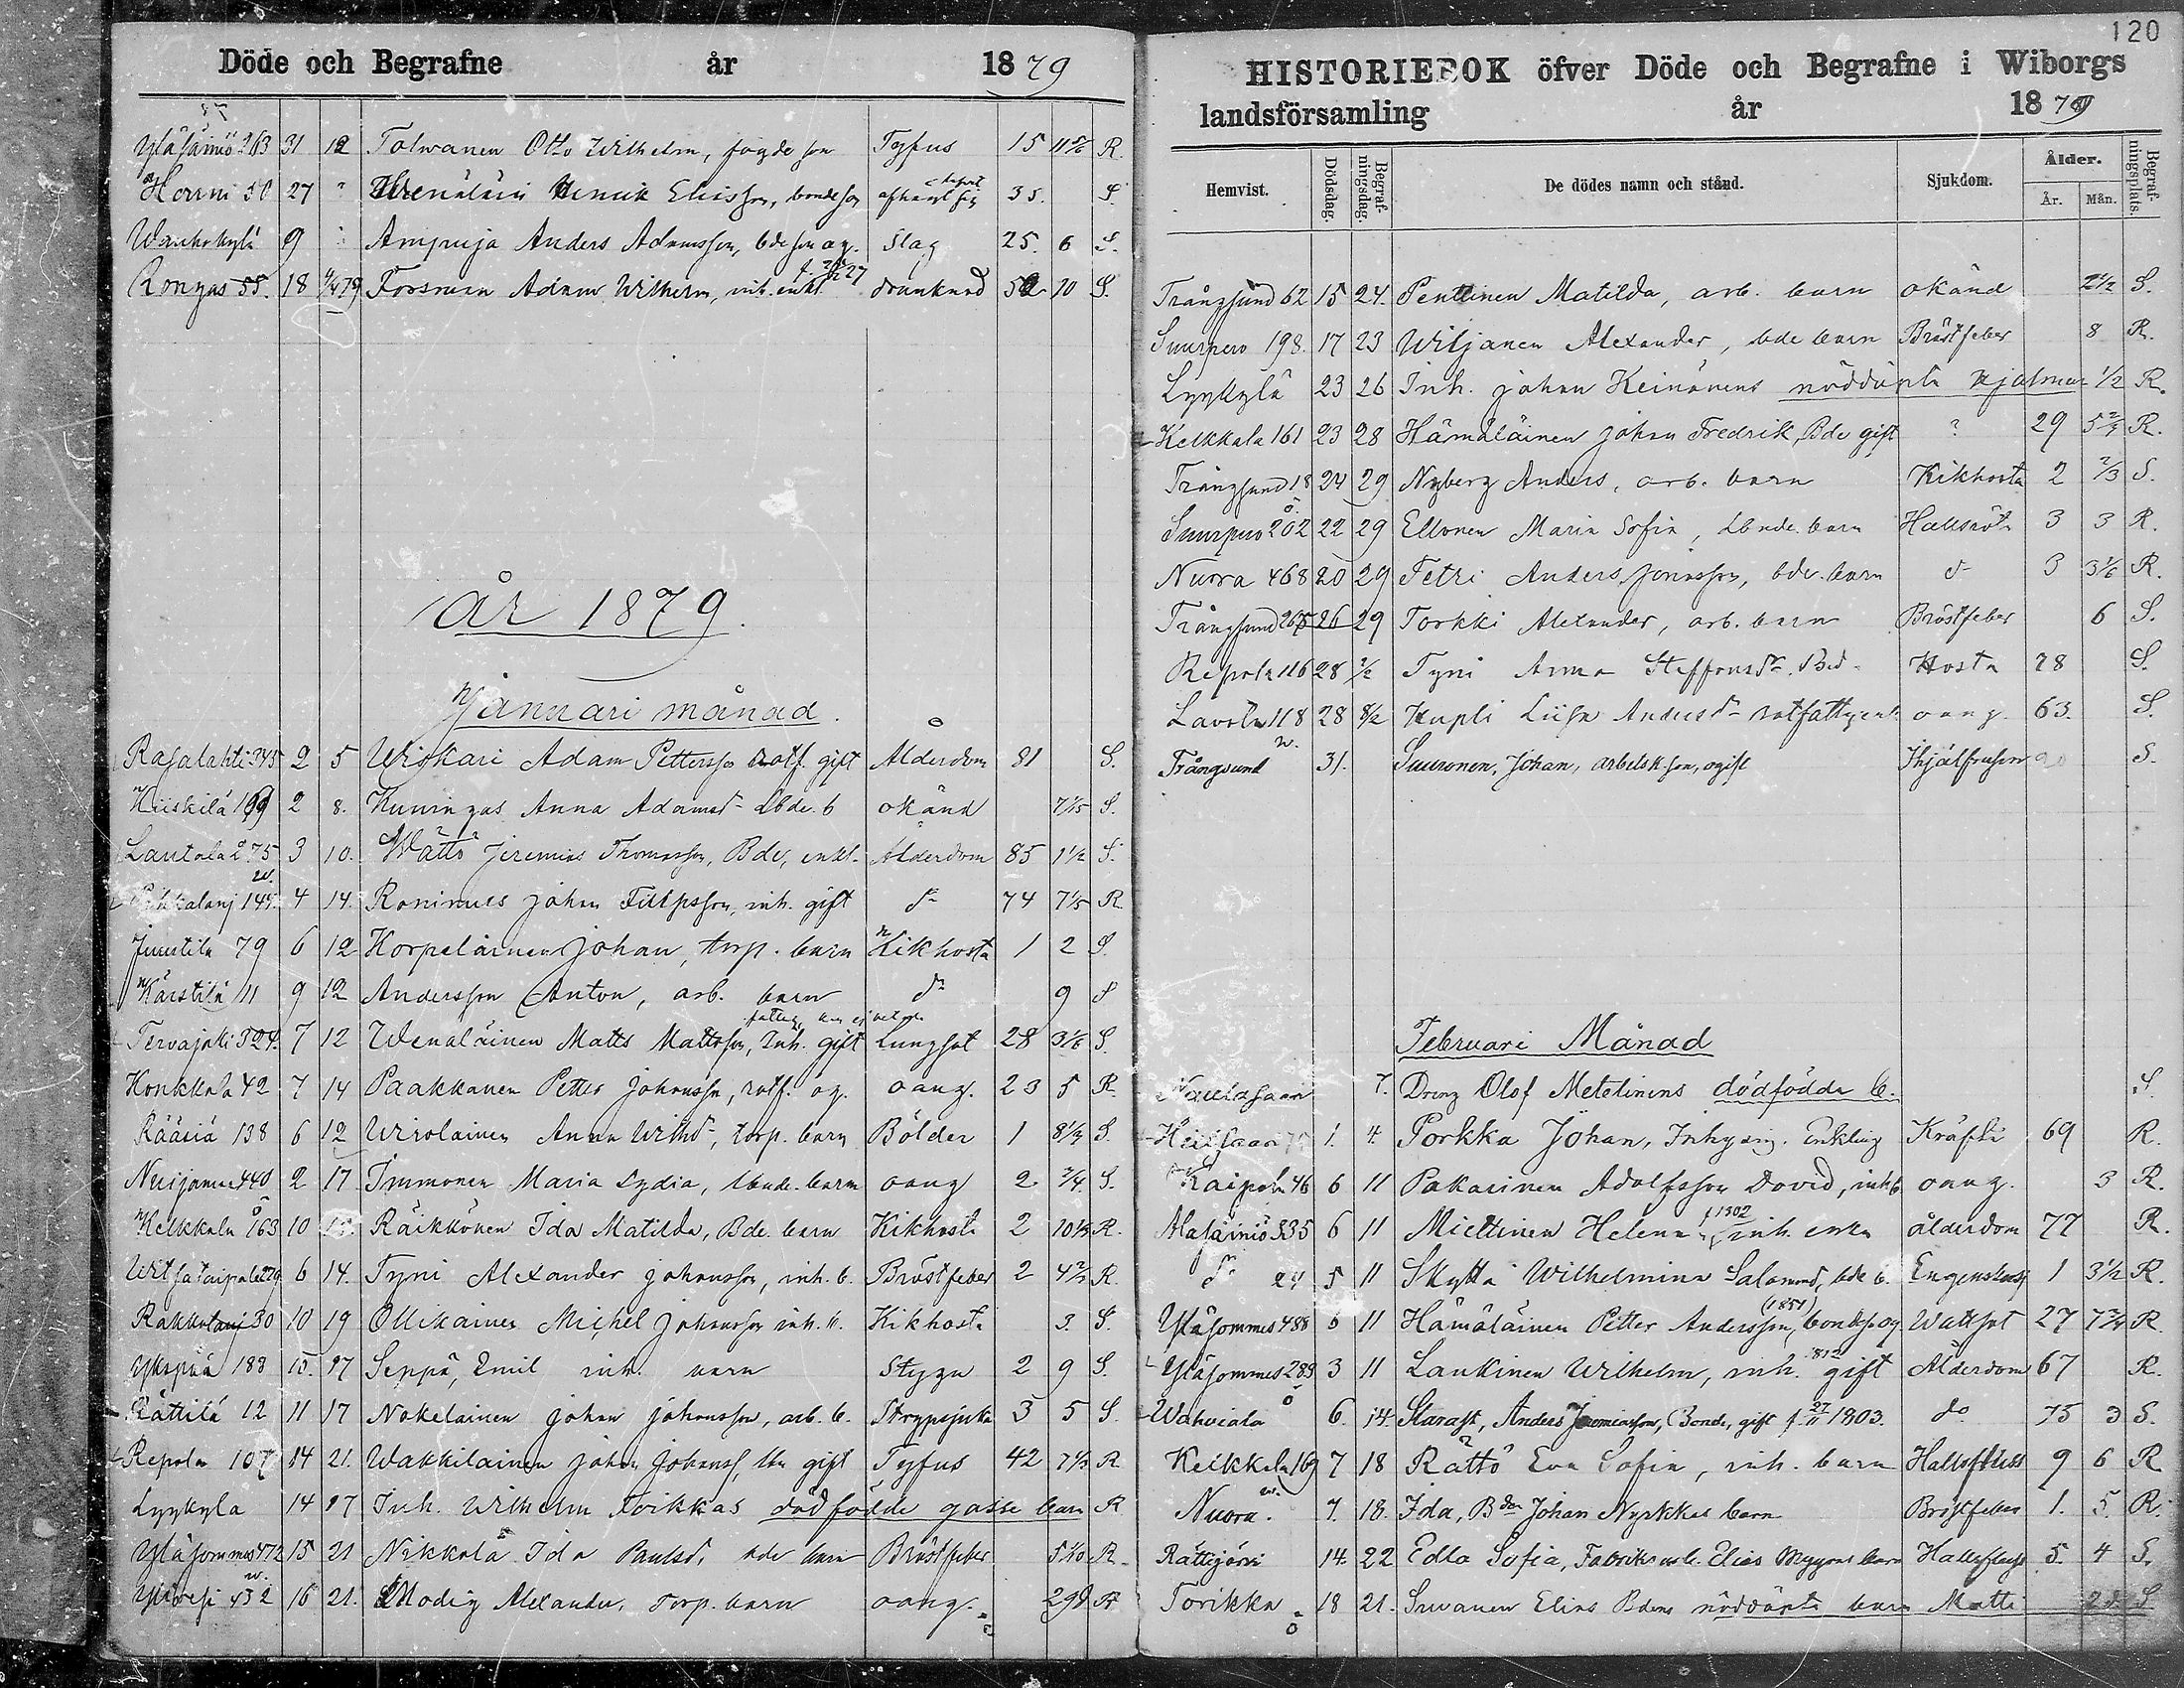 Döde och Begrafne år 1879
Yläsäiniö 263 31 12 Tolwanen Otto Wilhelm, fogde son Tyfus 15 11 5/6 R.
Horrni 50 27 " Henrik Eliasson, bondeson afhandt sig 35. S.
Wanhakylä 9 " Ampuja Anders Adamsson, bdeson og. Slag 25. 6 S.
Rongas 55. 18 4/4 79 Forsman Adam Wilhelm, inh. enkl. drunknad 52 10 S.
år 1879.
Januari månad.
Rasalahti 345 2 5 Wiskari Adam Pettersson rotf. gift Ålderdom 81 S.
Hiiskilä 199 2 8. Kuningas Anna Adamsdr Lbde. b okänd 7/15 S.
Lautala 275 3 10. Wättö Jeremias Thomasson, Bde, enkl. Ålderdom 85 1 1/2 S.
Pihkalanj 145. 4 14. Ronimus Johan Filipsson, inh. gift do 74 7/5 R
Juustila 79 6 12 Korpelainen Johan, torp. barn Kikhosta 1 2 S
Kärstilä 11 9 12 Andersson Anton, arb. barn do 9 S
Tervajoki 324. 7 12 Wenäläinen Matts Mattsson, Inh. gift Lungsot 28 3 1/6 S.
Konkkala 42 7 14 Paakkanen Petter Johansson, rotf. og. oang. 23 5 R.
Rääsiä 138 6 12 Wirolainen Anna Wilhdr, torp. barn Bölder 1 8 1/3 S.
Nuijamaa 440 2 17 Immonen Maria Lydia, lbnde. barn oang 2. 3/4. S.
Kelkkala 163 10 Räikkönen Ida Matilda, Bde. barn Kikhosta 2 10 1/2 R.
Witsataipale 229 6 14. Tyni Alexander Johansson, inh. b. Bröstfeber 2 4 2/3 R.
Rakkolanj 30 10 19 Ollikainen Michel Johansson inh. b. Kikhosta 3. S.
Ykspää 188 15. 17 Seppä, Emil inh. barn Stygn 2 9 S.
Rättilä 12 11 17 Nokelainen Johan Johansson, arb. b. Strypsjuka 3 5 S
Repola 107 14 21. Wakkilainen Johan Johanss, lbn gift Tyfus 42 7 1/3 R
Lyykylä 14 17 Inh. Wilhelm Toikkas dödfödde gosse barn R
Yläsommes 472 15 21 Nikkola Ida Paulsd, bde barn Bröstfeber 5 1/10 R.
Ylivesi 432 16 21. Modig Alexander, torp. barn oang. 29d R
120
HISTORIEBOK öfver Döde och Begrafne i Wiborgs
landsförsamling år 1879
Hemvist. Dödsdag. Begrafningsdag. De dödes namn och stånd. Sjukdom. Ålder. År. Mån. Begrafningsplats.
Trångsund 62 15 24. Penttinen Matilda, arb. barn okänd 2 1/2 S.
Suurpero 198. 17 23 Wiljanen Alexander, bde barn Bröstfeber 8 R.
Lyykylä 23 26 Inh. Johan Keinänens nöddöpta Hjalmar 1/2 R.
Kelkkala 161 23 28 Hämäläinen Johan Fredrik, Bde gift ? 29 5 2/3 R.
Trångsund 18 24 29 Nyberg Anders, arb. barn Kikhosta 2 2/3 S.
Suurpero 202 22 29 Ellonen Maria Sofia, lbnde. barn Halsröta 3 3 R.
Nuora 468 20 29 Tetri Anders Jonasson, bde. barn do 3 3 1/6 R.
Trångsund 265 26 29 Torkki Alexander, arb. barn Bröstfeber 6 S.
Repola 116 28 1/2 Tyni Anna Staffansdr. Bd. Hosta 78 S.
Lavola 118 28 8/2 Kupli Liisa Andersdr rotfattig enk. oang. 63. S.
Trångsund 31. Suuronen, Johan, arbetsk.son, ogift Ihjälfrusen 20 S.
Februari Månad
Naulasaari 7. Dreng Olof Metelinens dödfödda b. S.
Heilsaari 1. 4. Porkka Johan, Inhysing. Enkling Kräfta 69 R.
Kaipola 46 6 11 Pakarinen Adolfsson David, inh b oang. 3 R.
Alasäiniö 335 6 11 Miettinen Helena f. 1802 inh. enka ålderdom 77 R.
do 24 5 11 Skyttä Wilhelmina Salomosd, bde b. Engensksj 1 3 1/2 R.
Yläsommes 488 6 11 Hämäläinen Petter Andersson, (1851) bondeson og Wattsot 27 7 3/4 R
Yläsommes 289 3 11 Laukinen Wilhelm, inh. 1812 gift Ålderdom 67 R.
Wahviala 6. 14 Starast, Anders Jeremiasson, Bonde, gift f. 27/11 1803. do 75 3 S.
Kelkkala 169 7 18 Rättö Eva Sofia, inh. barn Halsfluss 9 6 R
Nuora. 7. 18. Ida, Bden Johan Nyrkkas barn Bröstfeber 1. 5. R.
Rättijärvi 14. 22 Edla Sofia, Fabriks arb. Elias Myyräs barn Halsfluss 5. 4 S.
Torikka 18 21. Suvanen Elias Bdens nöddöpta barn Matti 2d. S